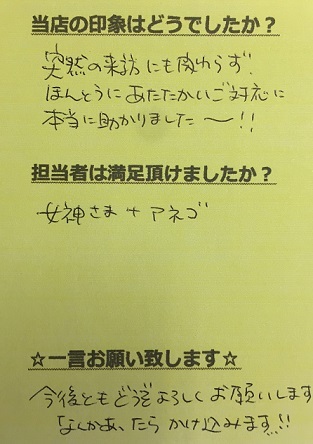 当店の印象はどうでしたか？
突然の来訪にも関わらず！
ほんとうにあたたかいご対応に
本当に助かりました〜!!
担当者は満足頂けましたか？
女神さま + アネゴ
☆一言お願い致します☆
今後ともどうぞよろしくお願いします
なんかあったらかけ込みます!!